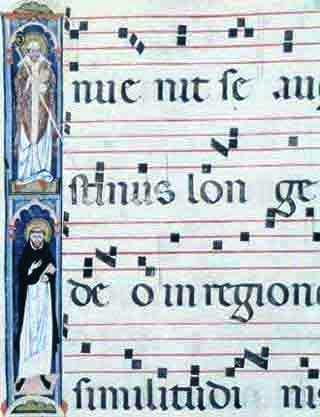 nue nit se au
stinus lon ge
de o in regione
similitudi nis